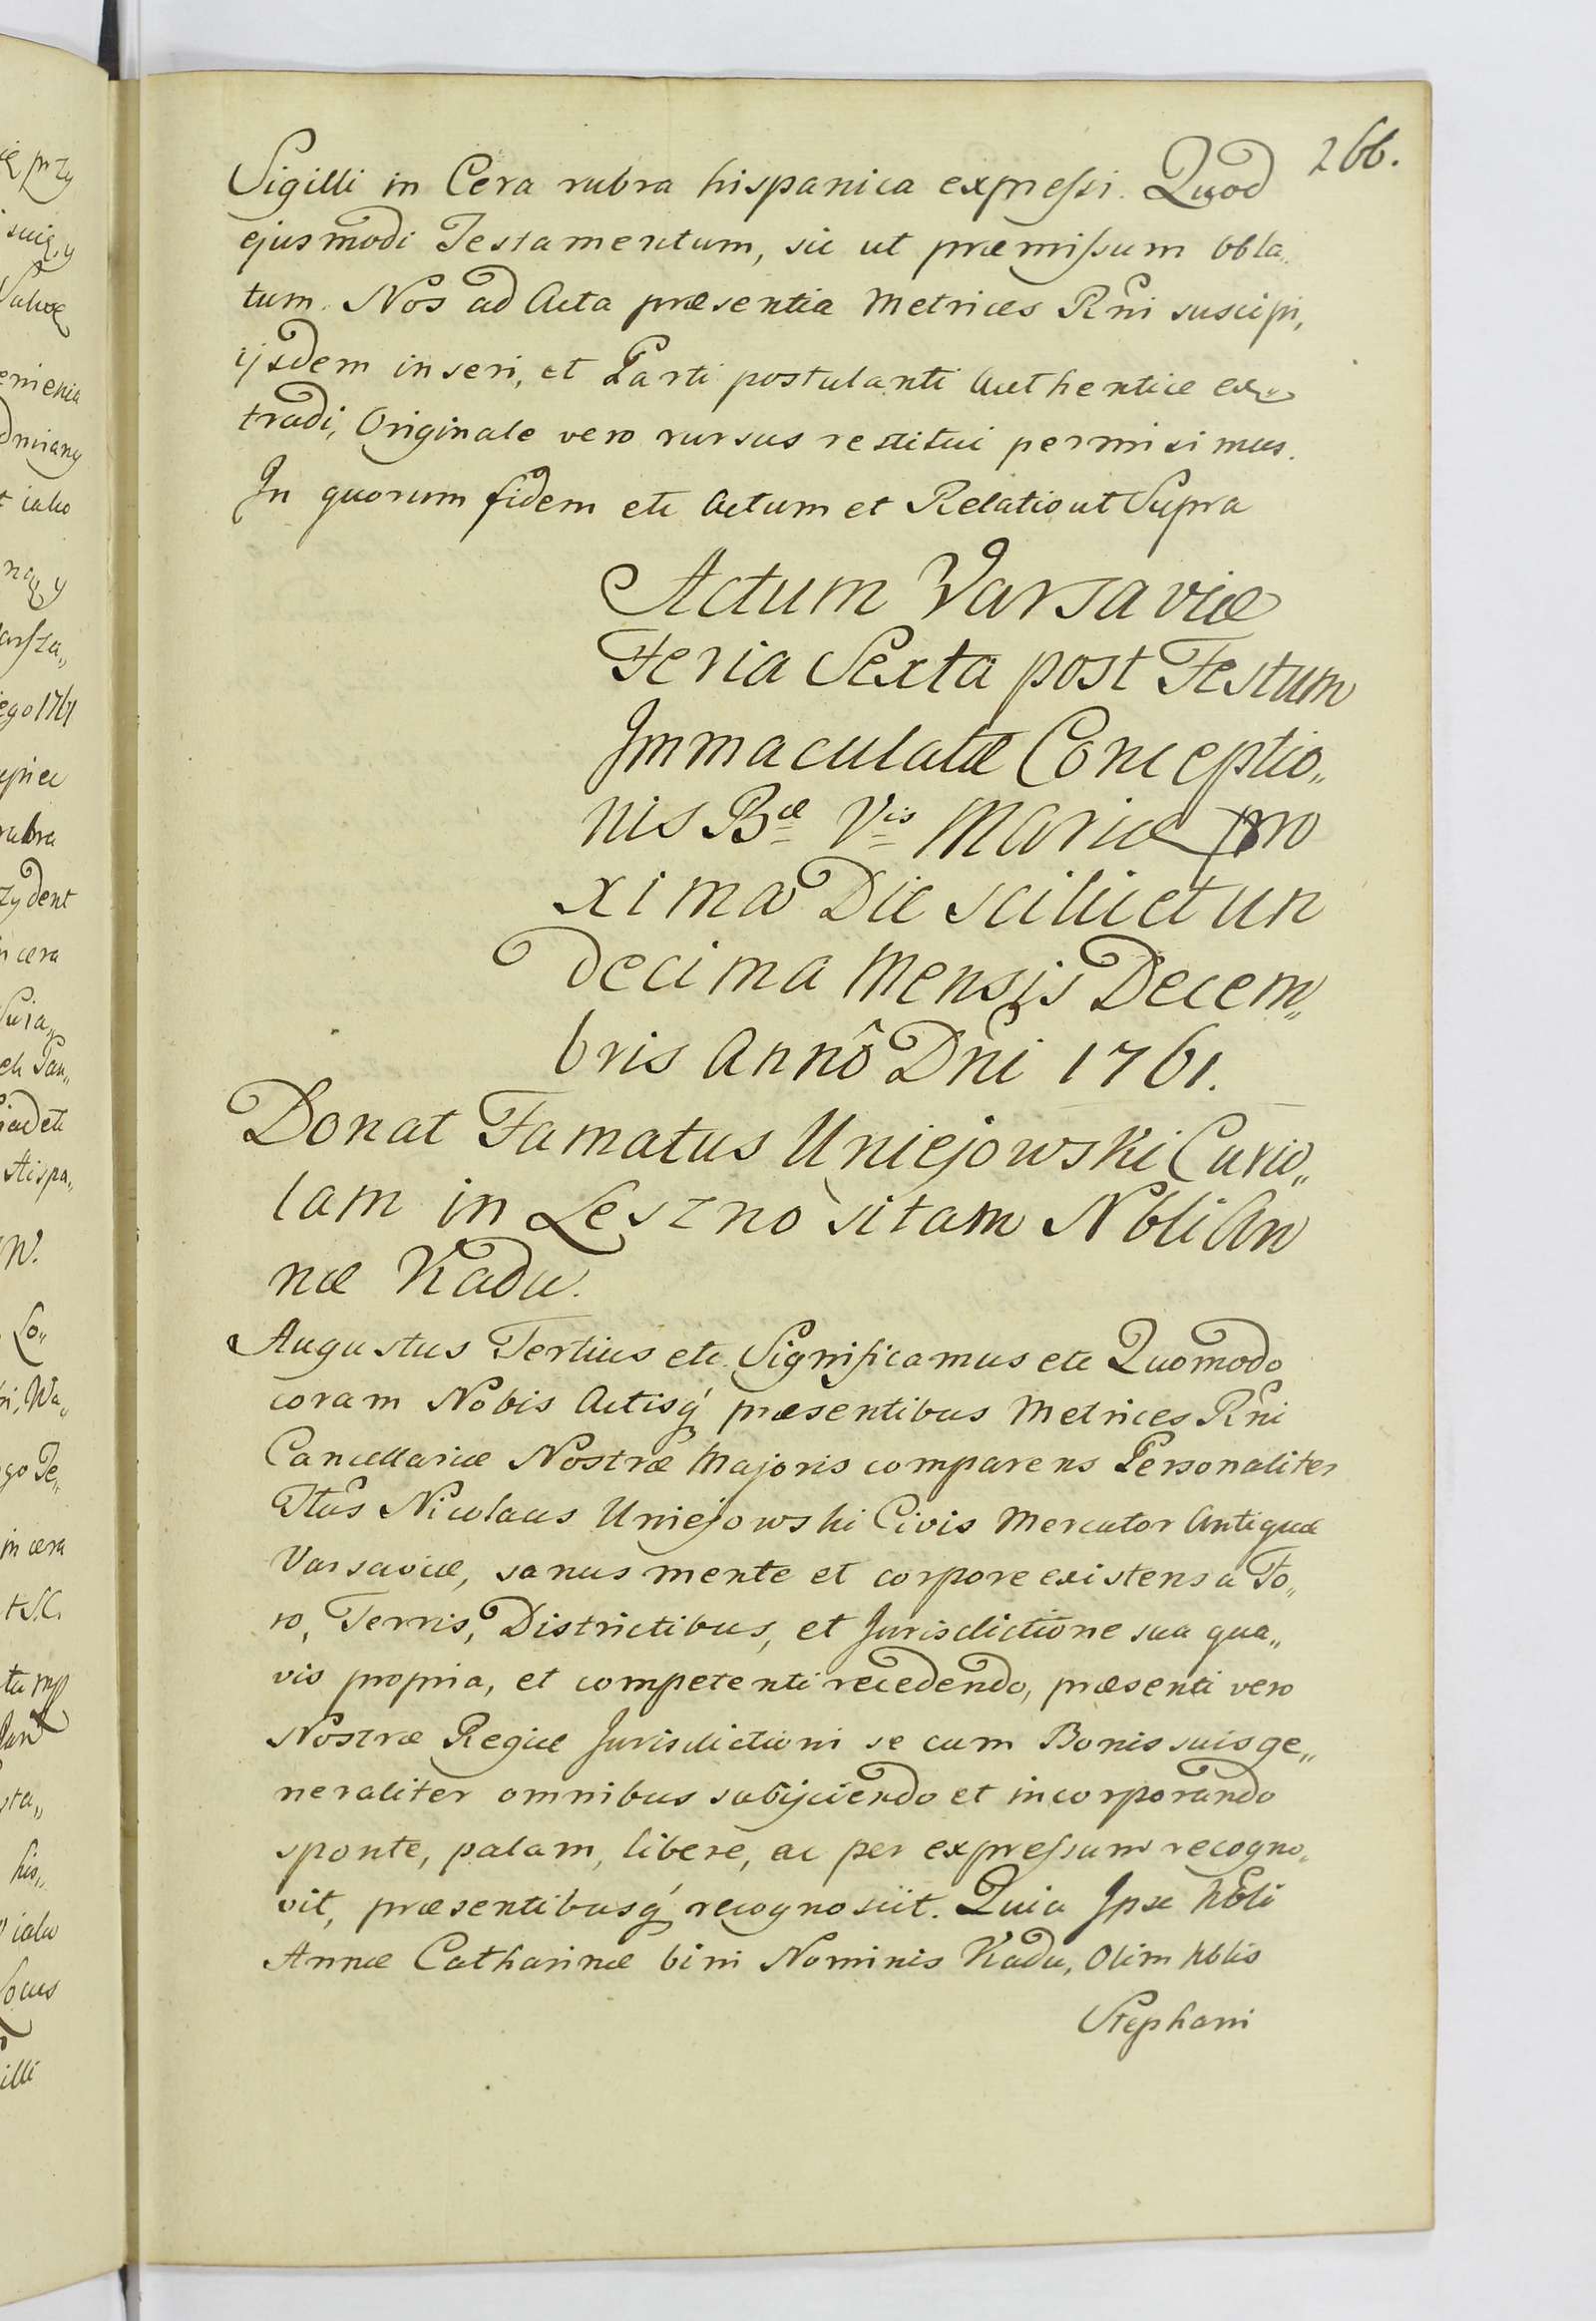 266.
Sigilli in Cera rubra hispanica expressi. Quod
ejusmodi Testamentum, sic ut præmissum obla„
tum. Nos ad Acta præsentia Metrices Rñi suscipi,
ijsdem inseri, et Parti postulanti Authentice ex„
tradi, Originale vero rursus restitui permisimus.
In quorum fidem etc Actum et Relatio ut Supra
Actum Varsaviæ
Feria Sexta post Festum
Immaculatæ Conceptio„
nis Bæ Vis Mariæ pro
xima Die scilicet un
decima Mensis Decem„
bris Annô Dñi 1761.
Donat Famatus Uniejowski Curio„
lam in Leszno sitam Nbli An
næ Kadu.
Augustus Tertius etc. Significamus etc Quomodo
coram Nobis Actisq́ præsentibus Metrices Rñi
Cancellariæ Nostræ Majoris comparens Personaliter
Ftus Nicolaus Uniejowski Civis Mercator Antiquæ
Varsaviæ, sanus mente et corpore existens a Fo„
ro, Terris, Districtibus, et Jurisdictione sua qua„
vis propria, et competenti recedendo, præsenti vero
Nostræ Regiæ Jurisdictioni se cum Bonis suis ge„
neraliter omnibus subijciendo et incorporando
sponte, palam, libere, ac per expressum recogno„
vit, præsentibusq́ recognoscit. Quia Ipse Nbli
Annæ Catharinæ bini Nominis Kadu, Olim Nblis
Stephani